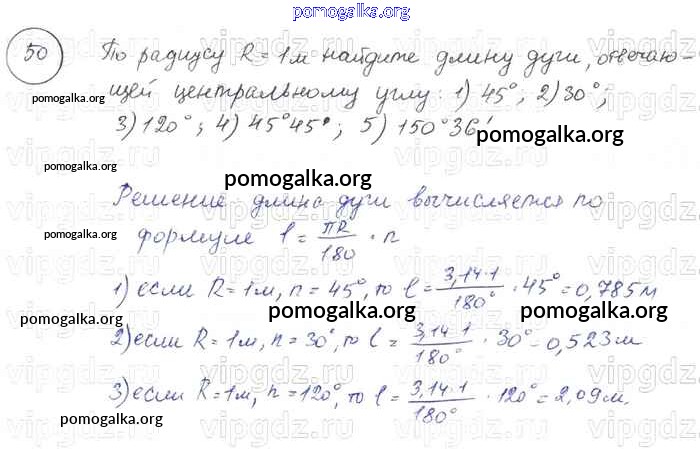 pomogalka.org
50 По радиусу R = 1 м найдите длину дуги, отвечаю-
щей центральному углу: 1) 45°; 2) 30°;
pomogalka.org
3) 120°; 4) 45°45'; 5) 150°36'
pomogalka.org
pomogalka.org
pomogalka.org
Решение длина дуги вычисляется по
pomogalka.org
формуле l = πR/180 · n
1) если R = 1 м, n = 45°, то l = 3,14·1/180° · 45° = 0,785 м
pomogalka.org pomogalka.org
2) если R = 1 м, n = 30°, то l = 3,14·1/180° · 30° = 0,523 м
pomogalka.org
3) если R = 1 м, n = 120°, то l = 3,14·1/180° · 120° = 2,09 м.
pomogalka.org
vipgdz.ru